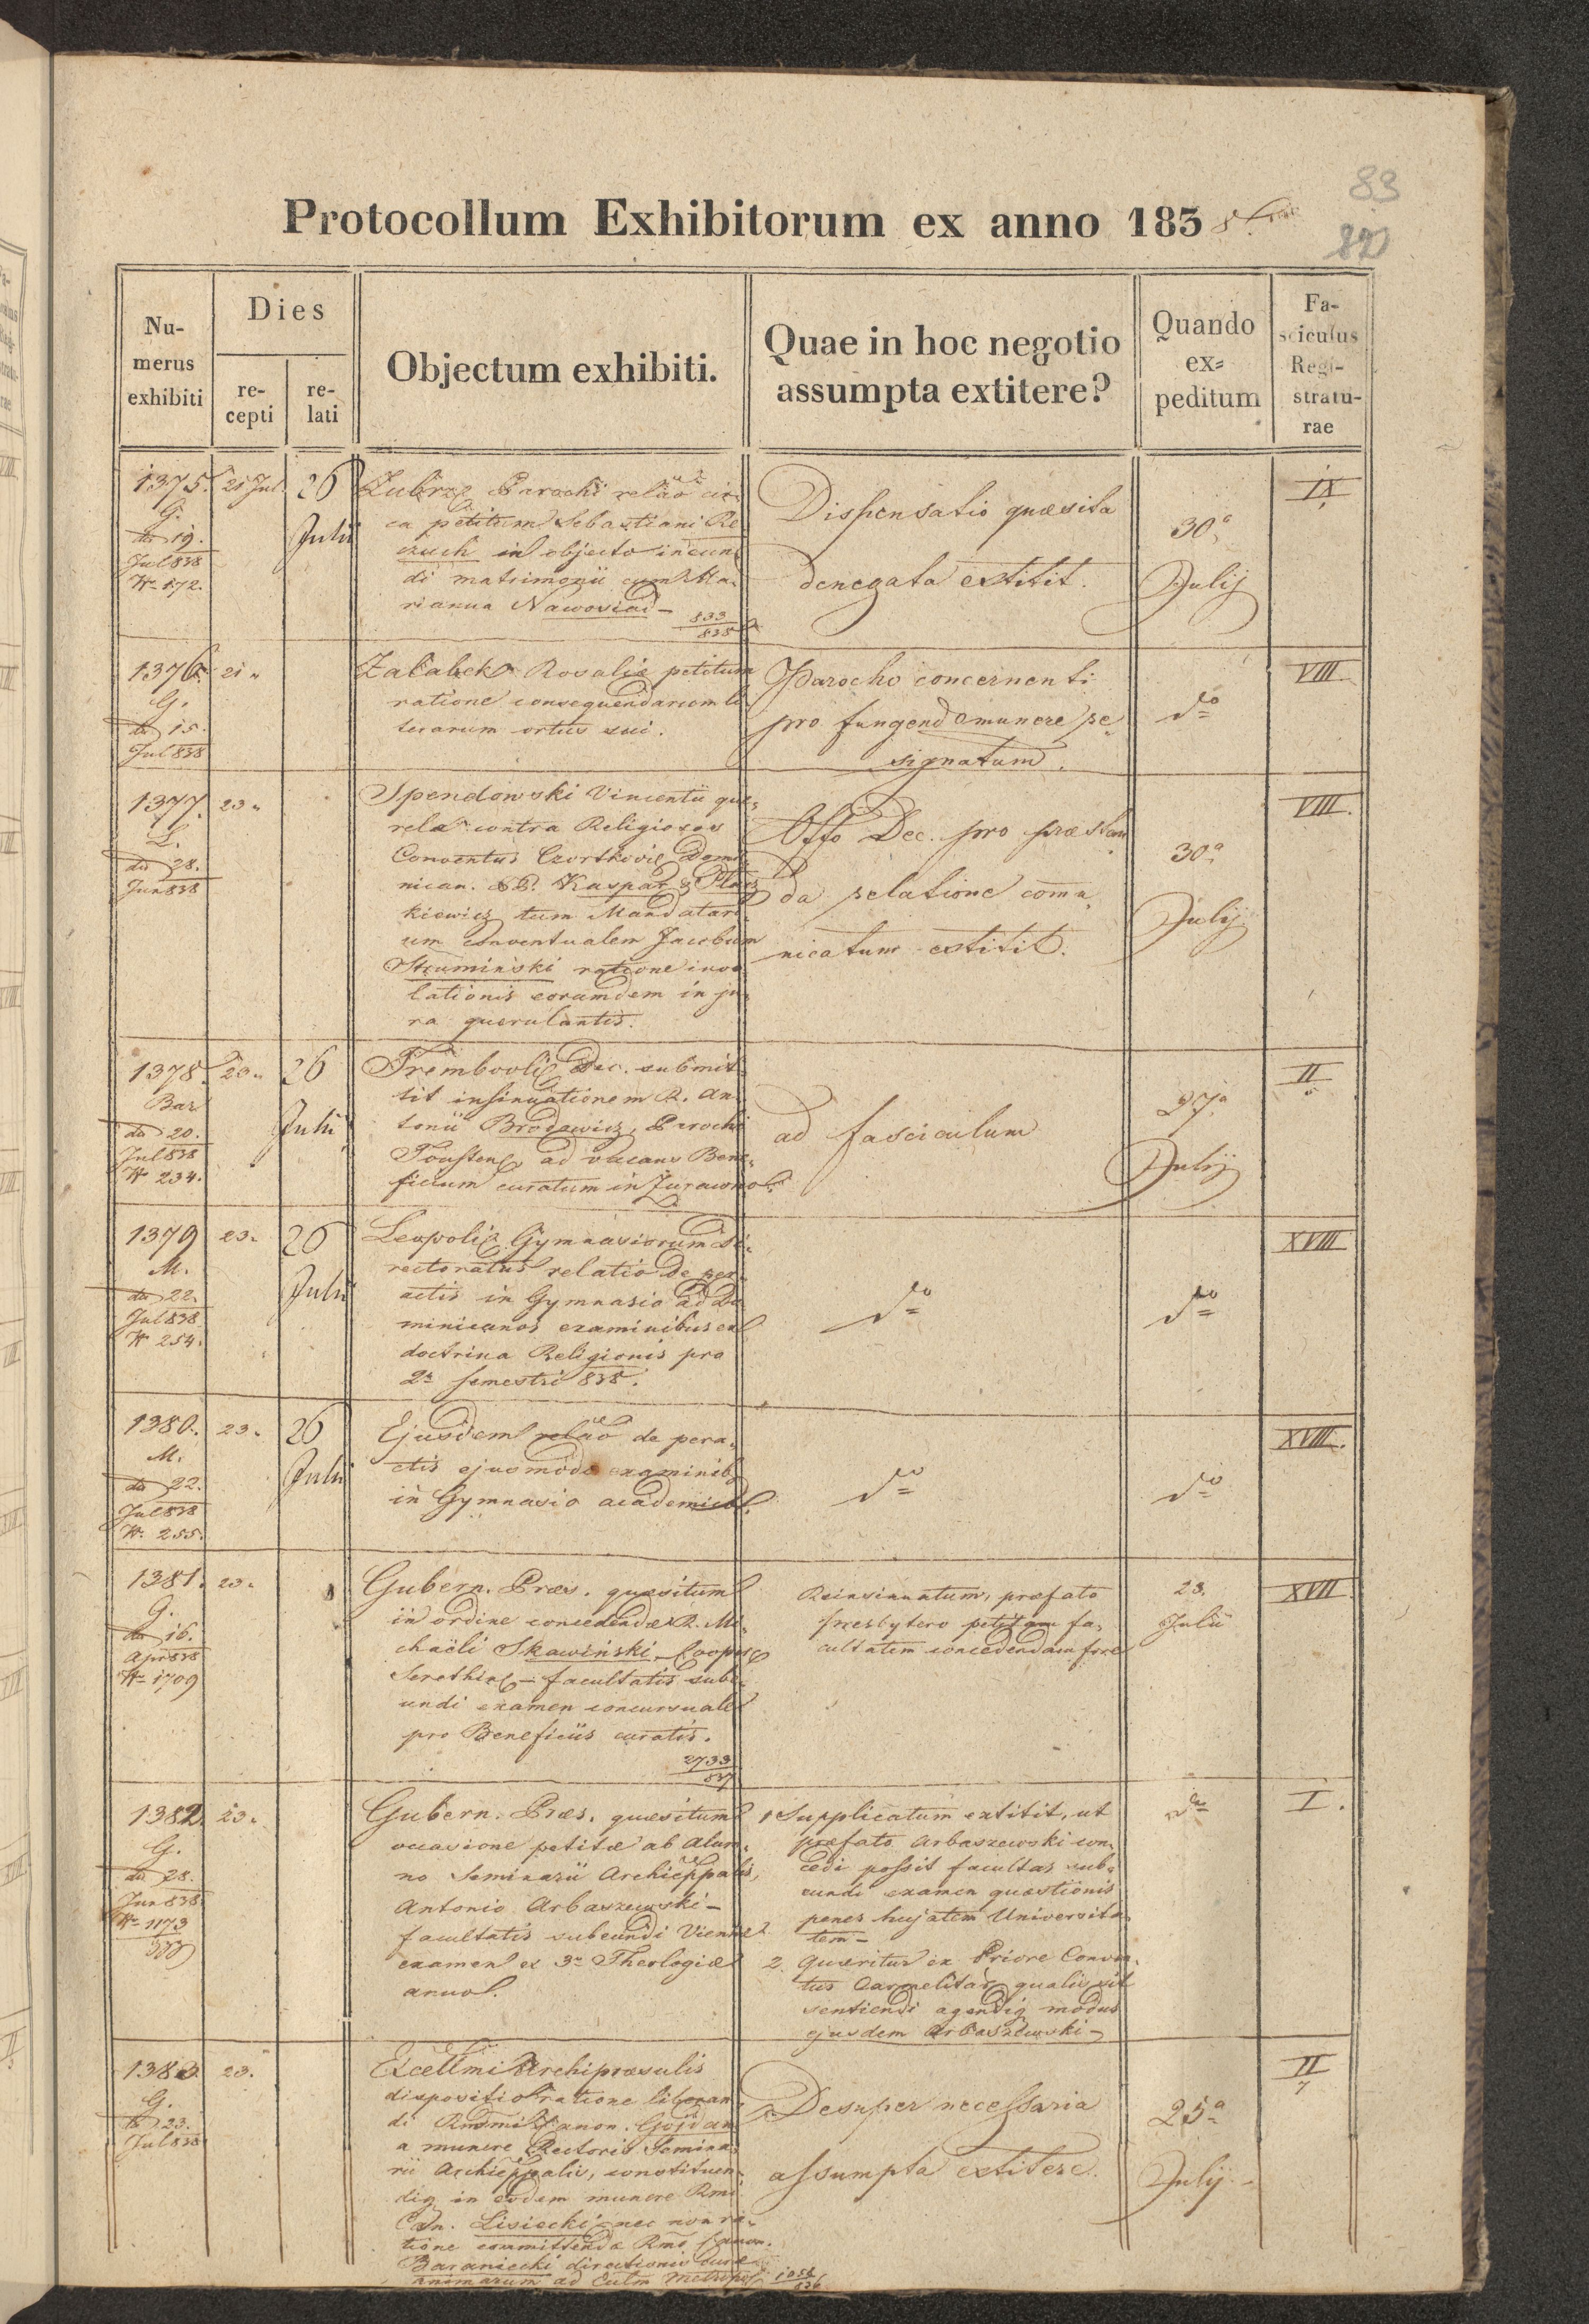 83
82
Protocollum Exhibitorum ex anno 1838
Numerus exhibiti
Dies
recepti
relati
Objectum exhibiti.
Quae in hoc negotio assumpta extitere?
Quando ex=peditum
Fasciculus Registraturae
1375.
G.
dto 19.
Jul 838
No 172.
21 Jul.
26
Julii
Zubrze Parochi relāo cir
ca petitum Sebastiani Re
czuch in objecto ineun
di matrimonii cum Ma
rianna Nawosiad –
833
838
Dispensatio quæsita
denegata extitit.
30a
Julij
IX
1376.
G.
dto 15.
Jul 838
21 "
Zalabek Rosaliæ petitum
ratione consequendarum lit
terarum ortus sui.
Parocho concernenti
pro fungendo munere se
signatum.
do
VIII
1377.
L.
dto 28.
Jun 838
23 "
Spendowski Vincentii que
rela contra Religiosos
Conventus Czortkovie Domi
nican. PP. Kaspar &
kiewicz tum Mandatari
um conventualem Jacobum
Strumiński ratione invo
lationis eorumdem in ju
ra querulantis.
Offo Dec. pro præstan
da relatione commu
nicatum extitit.
30a
Julij
VIII.
1378.
Bar
dto 20.
Jul 838
No 234.
23 "
26
Julii
Trembovlæ Dec. submit
tit insinuationem R. An
tonii Brodowicz, Parochi
Toustens ad vacans Bene
ficium curatum in Żurawno.
ad fasciculum
27a
Julij
II
1379
M.
dto 22.
Jul 838
No 254.
23 "
26
Julii
Leopoliæ Gymnasiorum Di
rectoratus relatio de per
actis in Gymnasio ad Do
minicanos examinibus ex
doctrina Religionis pro
2o semestri 838.
do
do
XVIII
1380.
M.
dto 22.
Jul 838
No 255.
23 "
26
Julii
Ejusdem relāo de pera
ctis ejusmodi examinib
in Gymnasio academico.
do
do
XVIII.
1381.
G.
dto 16.
Apr 838
No 1709
23 "
Gubern. Præs. quæsitum
in ordine concedendæ R. Mi
chaëli Skawiński, Cooper
Serethin – facultatis sube
undi examen concursuale
pro Beneficiis curatis.
2733
837
Reinsinuatum, præfato
presbytero petitam fa
cultatem concedendam fore
23.
Julii
XVII
1382.
G.
dto 28.
Jun 838
No 1173
23 "
Gubern. Præs. quæsitum
occasione petitæ ab Alum
no Seminarii Archieppalis,
Antonio Arbaszewski –
facultatis subeundi Viennæ
examen ex 3o Theologiæ
anno.
1 Supplicatum extitit, ut
præfato Arbaszewski con
cedi possit facultas sub
eundi examen quæstionis
penes hujatem Universita
tem –
2. Quæritur ex Priore Conven
tus Carmelitar. qualis sit
sentiendi agendiq modus
ejusdem Arbaszewski –
do
I.
1383.
G.
dto 23.
Jul 838
23.
Excellmi Archipræsulis
dispositio ratione liberan
di Rmi Canon. Gojdan
a munere Rectoris Semina
rii Archieppalis, constituen
diq in eodem munere Rmi
Can. Lisiecki nec non ra
tione committendæ Rmo Canon.
Baraniecki directionis curæ
animarum ad Eccl Metropol
Desuper necessaria
assumpta extitere.
25a
Julij
II
7